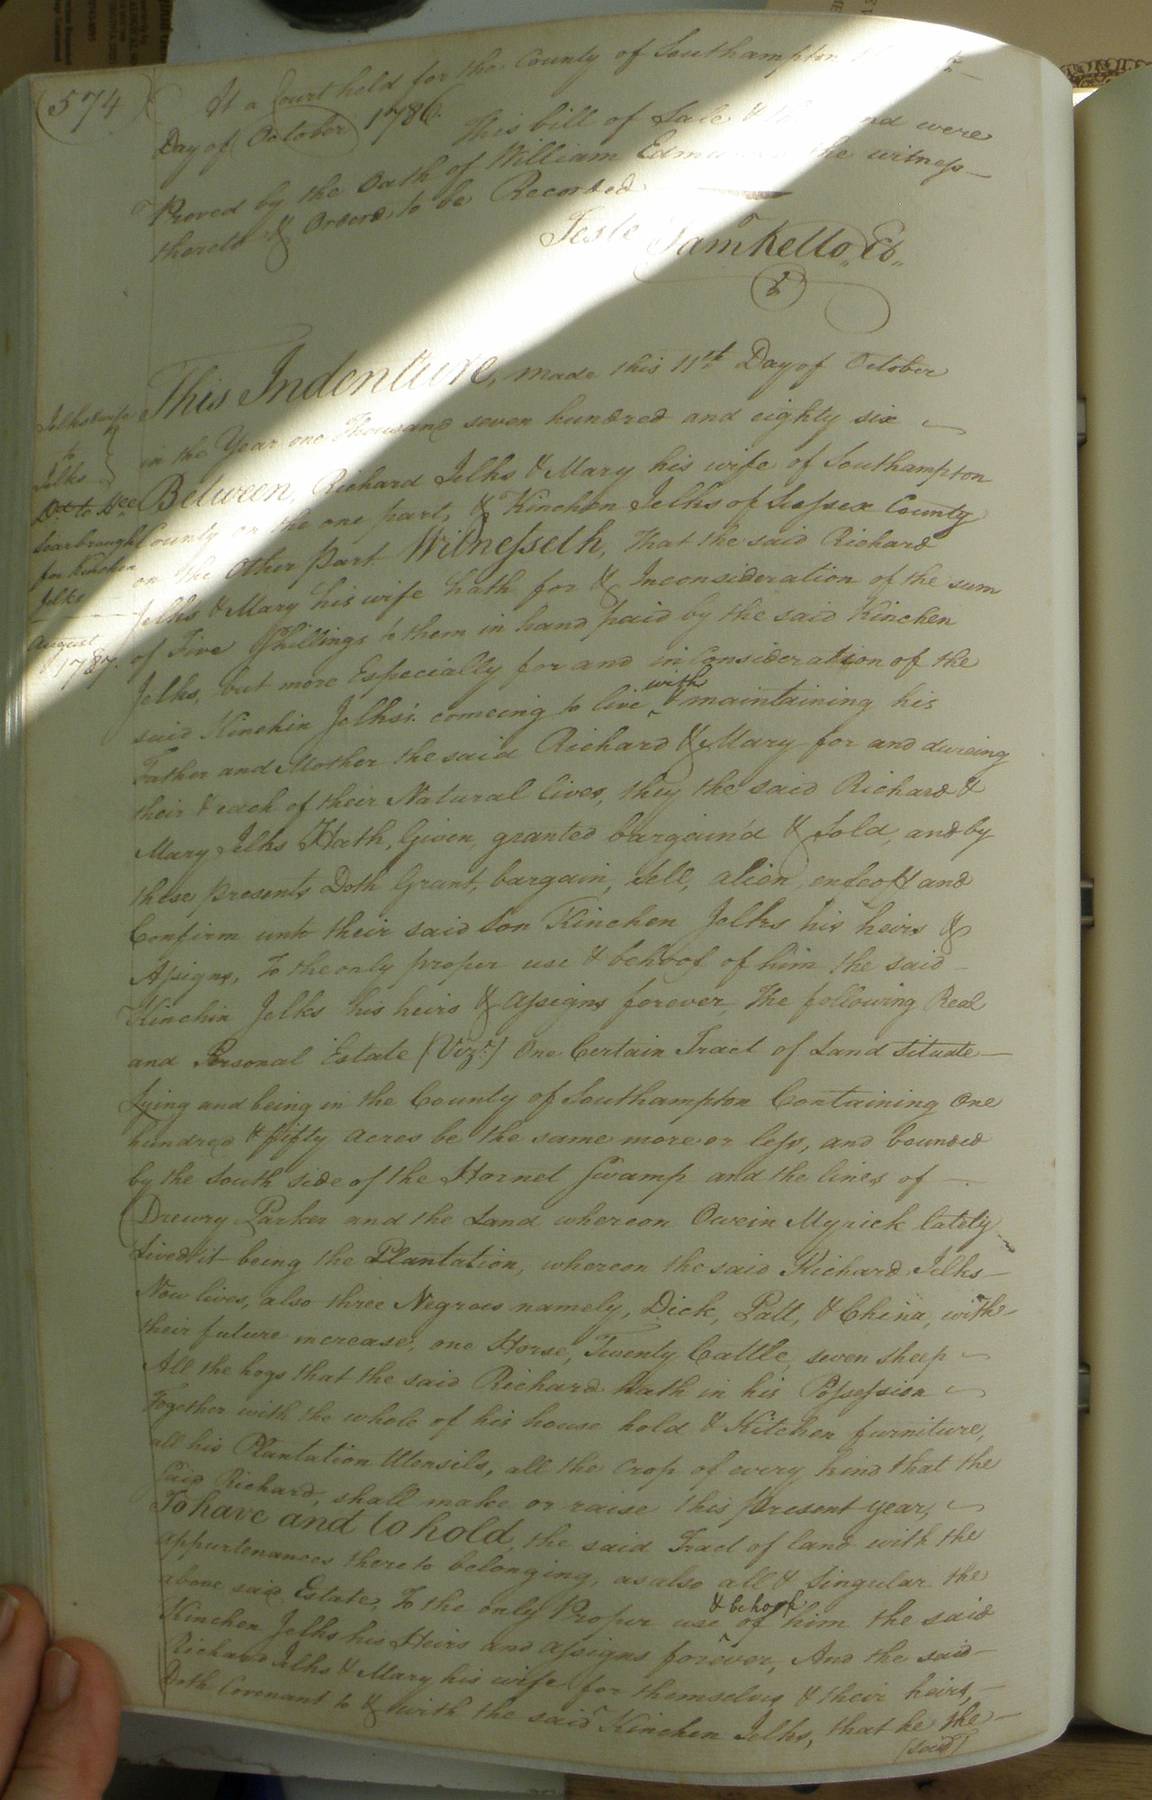 574
At a Court held for the County of Southampton
Day of October 1786. This bill of Sale & were
Proved by the Oath of William the witness
thereto & Orderd to be Recorded
Teste Samˡ Kello, Cᵗ
This Indenture, made this 11th Day of October
in the Year one Thousand seven hundred and eighty six
Between, Richard Jelks & Mary his wife of Southampton
County on the one part, & Kinchen Jelks of Sussex County
on the Other Part Witnesseth, That the said Richard
Jelks & Mary his wife hath for & Inconsideration of the sum
of Five Shillings to them in hand paid by the said Kinchen
Jelks, but more Especially for and in Consideration of the
said Kinchin Jelks's comeing to live with & maintaining his
Father and Mother the said Richard & Mary for and dureing
their & each of their Natural lives, they the said Richard &
Mary Jelks Hath, Given, granted bargain'd & Sold, and by
these presents Doth Grant, bargain, sell, alien, enfeoff and
Confirm unto their said Son Kinchen Jelks his heirs &
Assigns, To the only proper use & behoof of him the said
Kinchin Jelks his heirs & assigns forever, The following Real
and Personal Estate (Vizt) One Certain Tract of Land situate
Lying and being in the County of Southampton Containing One
hundred & fifty acres be the same more or less, and bounded
by the South side of the Hornet Swamp and the lines of
Drewry Parker and the Land whereon Owein Myrick lately
Lived it being the Plantation, whereon the said Richard Jelks
Now lives, also three Negroes namely, Dick, Patt, & China, with
their future increase, one Horse, Twenty Cattle, seven sheep
All the hogs that the said Richard hath in his Possession
Together with the whole of his house hold & Kitchen furniture,
all his Plantation Utensils, all the Crop of every kind that the
Said Richard, shall make or raise this present year,
To have and to hold, the said Tract of land with the
appurtenances thereto belonging, as also all & Singular the
above said Estate, To the only Proper use & behoof of him the said
Kinchen Jelks his Heirs and assigns forever, And the said
Richard Jelks & Mary his wife for themselves & their heirs,
Doth Covenant to & with the said Kinchen Jelks, that he the
(said)
Jelks & wife
to
Jelks
Scarbrough
for Kinchen
Jelks
August
1787.